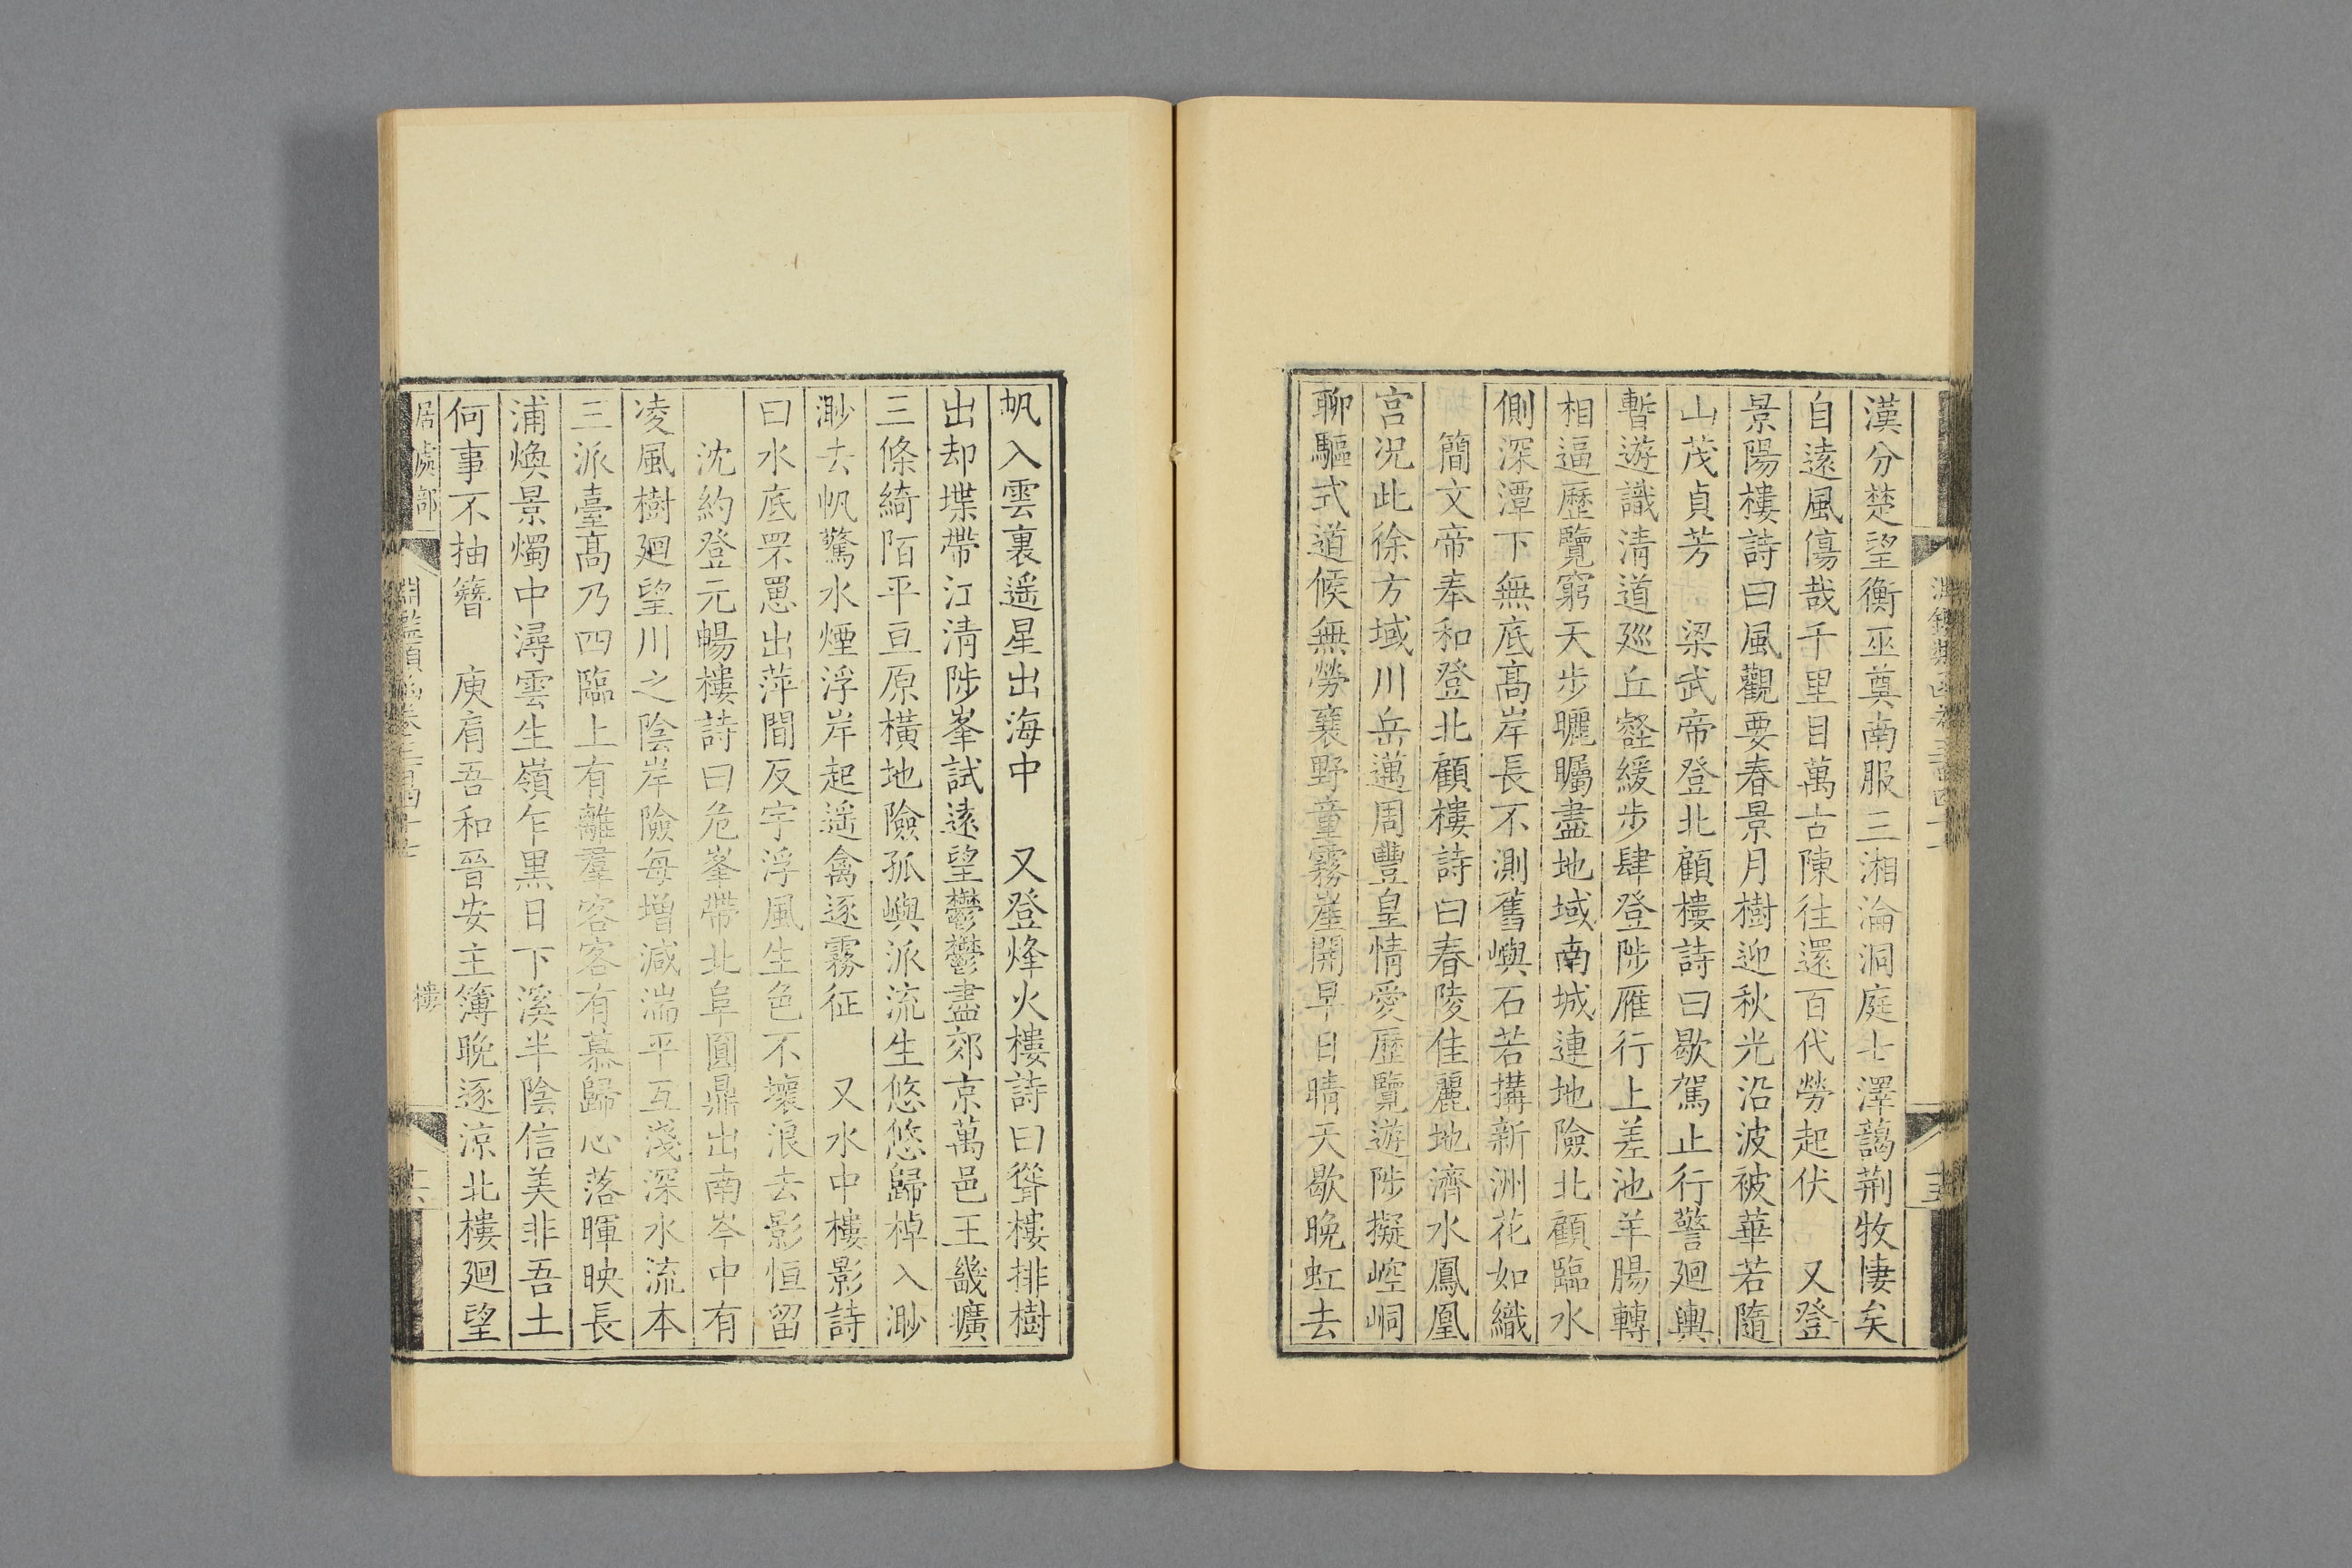 漢分楚望衡巫奠南服三湘淪洞庭七澤藹荆牧悽矣
自遠風傷哉千里目萬古陳往還百代勞起伏　又登
景陽樓詩曰風觀要春景月樹迎秋光沿波被華若隨
山茂貞芳　梁武帝登北顧樓詩曰歇駕止行警廻輿
暫遊識清道廵丘壑緩步肆登陟雁行上差池羊腸轉
相逼歷覽窮天步曬矚盡地域南城連地險北顧臨水
側深潭下無底髙岸長不測舊嶼石若搆新洲花如織
簡文帝奉和登北顧樓詩曰春陵佳麗地濟水鳳凰
宫況此徐方域川岳邁周豐皇情愛歷覽遊陟擬崆峒
聊驅式道候無勞襄野童霧崖開早日晴天歇晚虹去
帆入雲裏遥星出海中　又登烽火樓詩曰聳樓排樹
出却堞帶江清陟峯試遠望鬱鬱盡郊京萬邑王畿曠
三條綺陌平亘原橫地險孤嶼派流生悠悠歸棹入渺
渺去帆驚水煙浮岸起遥禽逐霧征　又水中樓影詩
曰水底罘罳出萍間反宇浮風生色不壞浪去影恒留
沈約登元暢樓詩曰危峯帶北阜圓鼎出南岑中有
凌風樹廻望川之陰岸險每增減湍平互淺深水流本
三派臺髙乃四臨上有離羣客客有慕歸心落暉映長
浦煥景燭中潯雲生嶺乍黒日下溪半陰信美非吾土
何事不抽簪　庾肩吾和晉安王簿晚逐涼北樓廻望
居處部
淵鑑類函卷三百四十七
樓